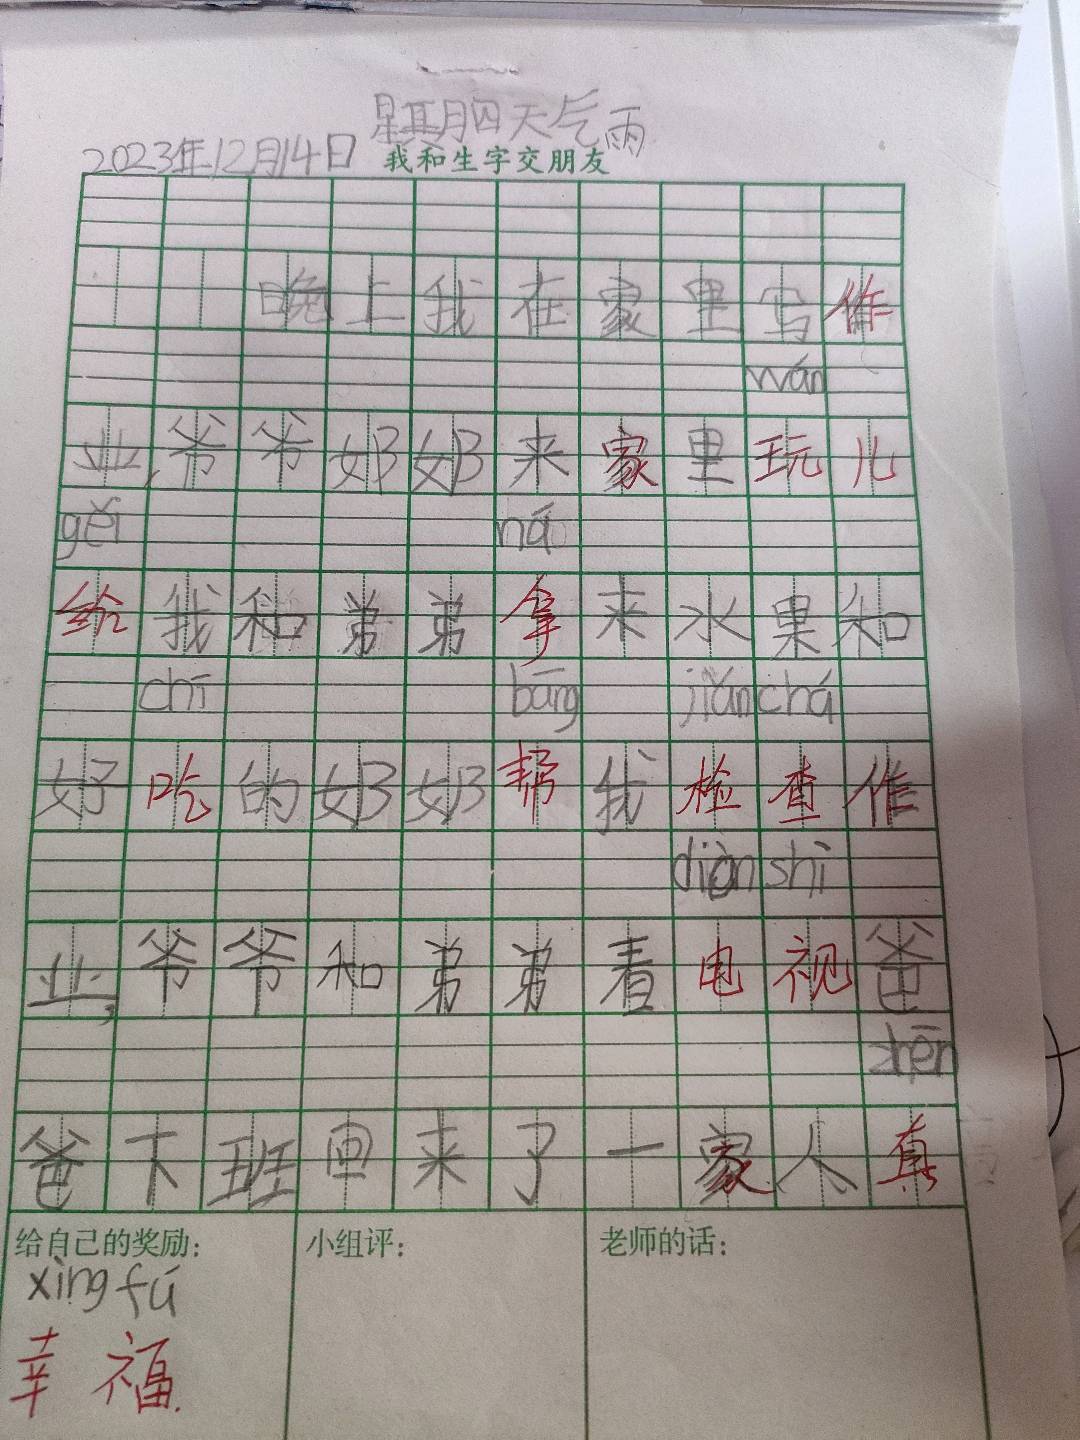 星期四天气雨
2023年12月14日 我和生字交朋友
晚上我在家里写作
wán
业,爷爷奶奶来家里玩儿
gěi ná
给我和弟弟拿来水果和
chī bāng jiǎn chá
好吃的奶奶帮我检查作
diàn shì
业,爷爷和弟弟看电视爸
zhēn
爸下班回来了一家人真
给自己的奖励: 小组评: 老师的话:
xìng fú
幸福.